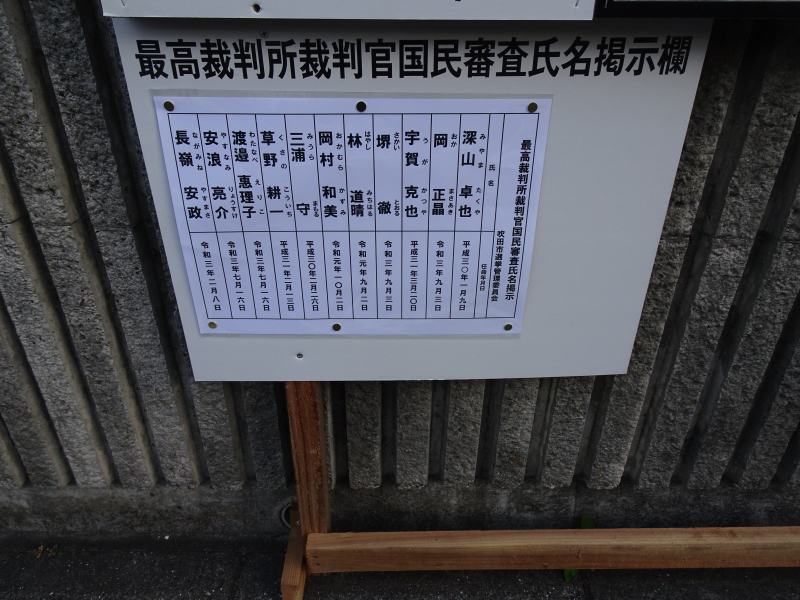 最高裁判所裁判官国民審査氏名掲示欄
最高裁判所裁判官国民審査氏名掲示
吹田市選挙管理委員会
氏名
任命年月日
みやま たくや
深山 卓也
平成三〇年一月九日
おか まさあき
岡 正晶
令和三年九月三日
うが かつや
宇賀 克也
平成三一年三月二〇日
さかい とおる
堺 徹
令和三年九月三日
はやし みちはる
林 道晴
令和元年九月二日
おかむら かずみ
岡村 和美
令和元年一〇月二日
みうら まもる
三浦 守
平成三〇年二月二六日
くさの こういち
草野 耕一
平成三一年二月一三日
わたなべ えりこ
渡邉 惠理子
令和三年七月一六日
やすなみ りょうすけ
安浪 亮介
令和三年七月一六日
ながみね やすまさ
長嶺 安政
令和三年二月八日